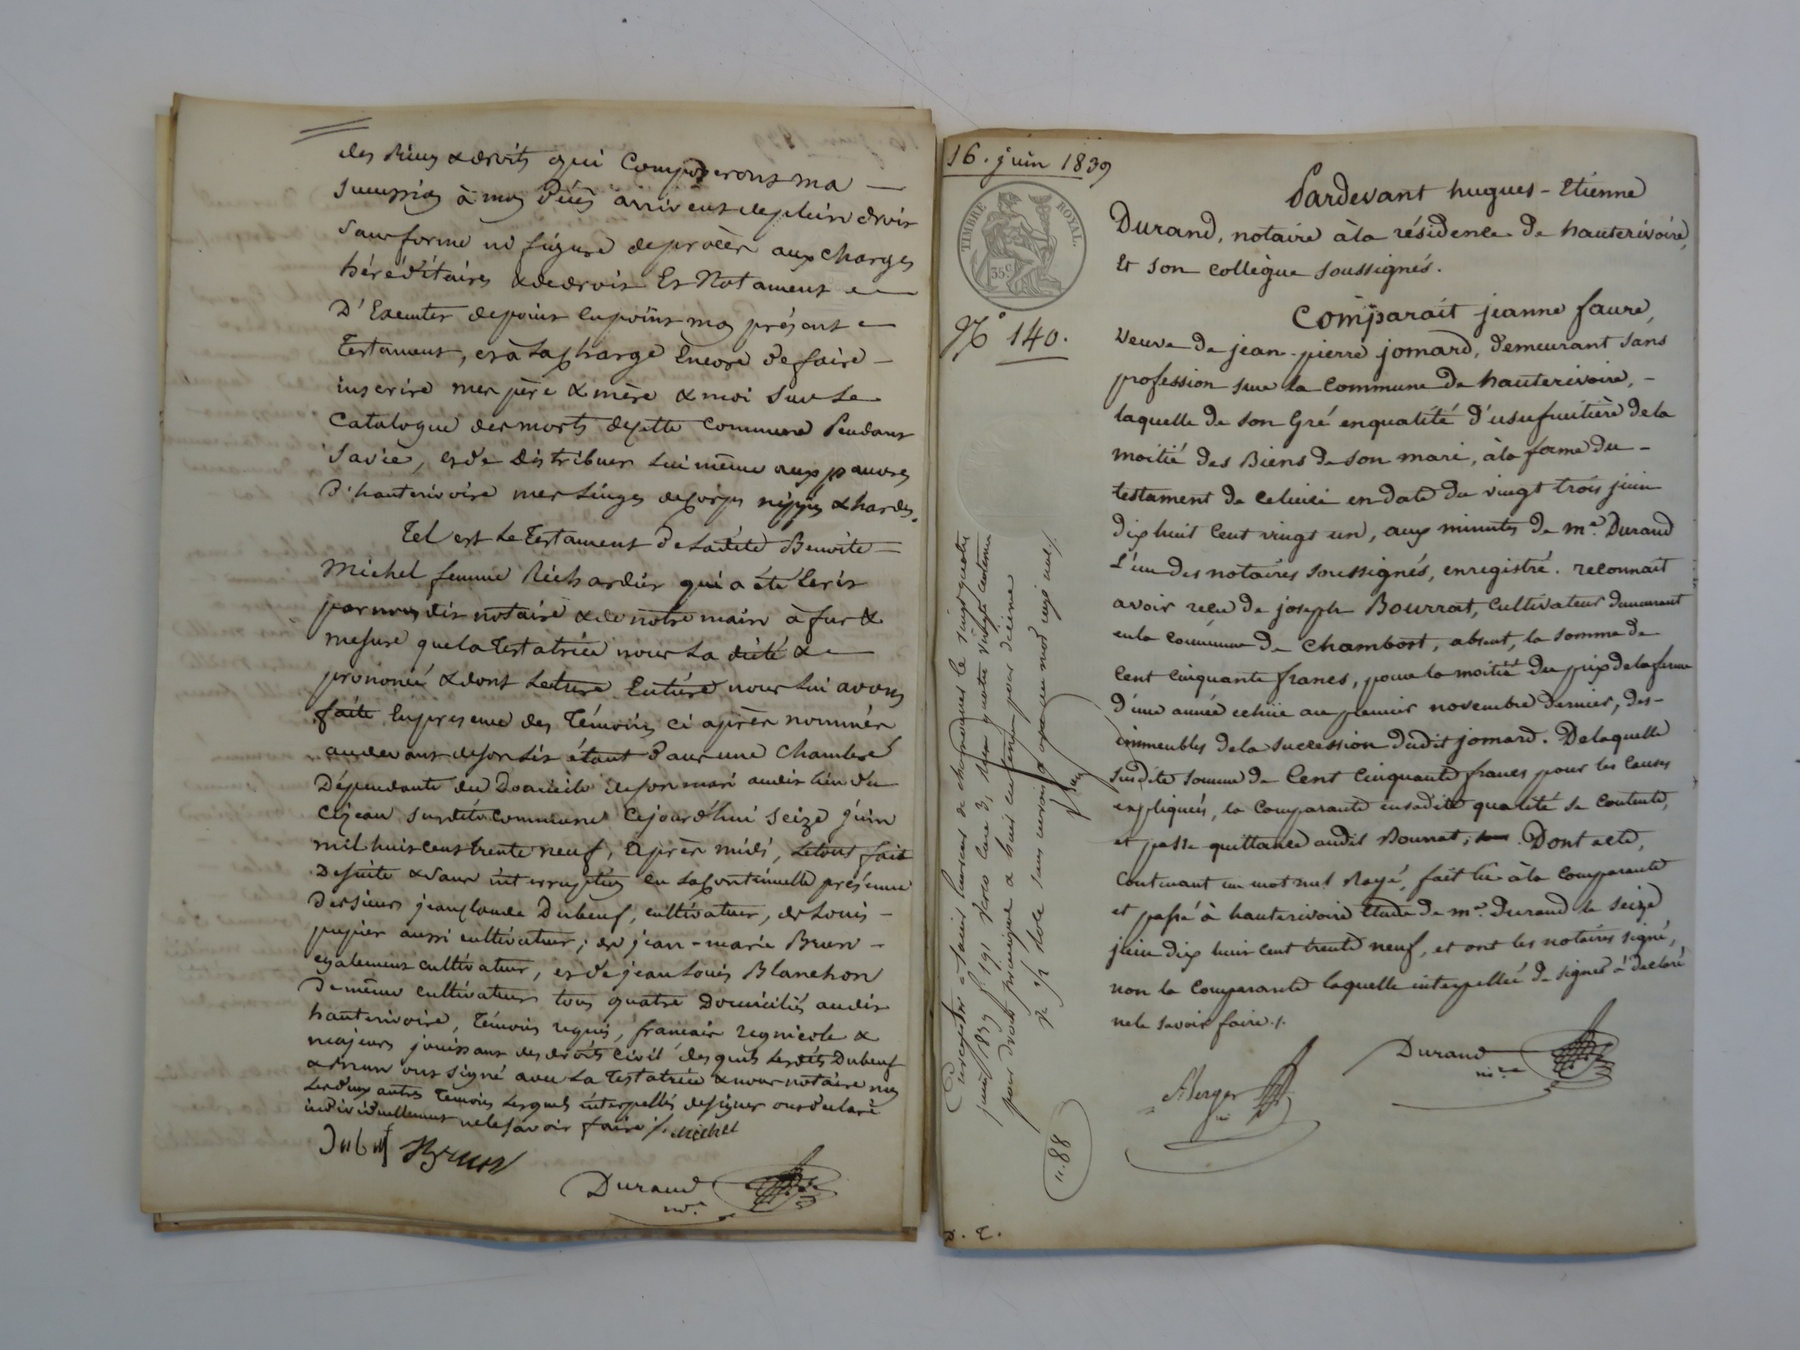 des Biens & droits qui Composeront ma
succession à mon Décès arrivent de plein droit
Sans forme ni figure de procès aux charges
héréditaires & de droit Et Notament
D'Executer de point en point mon présent
Testament, et à la charge Encore de faire
inscrire mes père & mère & moi Sur Le
Catalogue des morts de cette Commune Pendant
Sa vie, et de Distribuer Lui même aux pauvres
D'hauterivoire mes Linges de Corps nippes & hardes.
Tel est Le Testament De Ladite Benoite
Michel femme Richardier qui a été Ecrit
par nous dit notaire & de notre main à fur &
mesure que la Testatrice nous La dicté &
prononcé & dont Lecture Entière nous Lui avons
faite En presence des Témoins ci après nommés
au devant de son Lit étant Dans une Chambre
Dépendante du Domicile de son mari audit lieu du
susdite commune Cejourd'hui Seize juin
mil huit cent trente neuf, Après midi, Le tout fait
De suite & Sans interruption en La Continuelle présence
Des sieurs jean Claude Dubeuf, cultivateur, de Louis
pupier aussi cultivateur, de jean-marie Brun
egalement cultivateur, et de jean Louis Blanchon
De même cultivateur tous quatre Domiciliés audit
hauterivoire, Témoins requis, français regnicole &
majeurs jouissant des droits Civil desquels Lesdits Dubeuf
& Brun ont signé avec La Testatrice & nous notaire non
Les deux autres Temoins Lesquels interpellés de signer ont déclaré
individuellement ne le savoir faire /. Michel
Dubeuf Brun
Durand
nre.
16. juin 1839
TIMBRE ROYAL.
35c
No 140.
Pardevant hugues-Etienne
Durand, notaire à la résidence de hauterivoire,
Et son collègue soussignés.
Comparait jeanne faure,
Veuve de jean-pierre jomard, demeurant sans
profession sur la Commune de hauterivoire,
laquelle de son Gré en qualité d'usufruitière de la
moitié des Biens de son mari, à la forme du
testament de celui ci en date du vingt trois juin
dix huit Cent vingt un, aux minutes de me. Durand
L'un des notaires soussignés, enregistré. reconnait
avoir recu de joseph Bourrat, Cultivateur demeurant
en la Commune de Chambost, absent, la somme de
Cent Cinquante francs, pour la moitié du prix de la ferme
d'une année echüe au premier novembre Dernier, des
immeubles de la Succession dudit jomard. De laquelle
susdite Somme de Cent Cinquante francs pour les Causes
expliquées, la Comparante en sadite qualité se Contente,
et passe quittance audit Bourrat, . Dont acte,
Contenant un mot nul Rayé, fait lu à la Comparante
et passé à hauterivoire Etude de me. Durand le Seize
juin dix huit Cent trente neuf, et ont les notaires signé,
non la Comparante laquelle interpellée de signer à Declaré
ne le savoir faire /.
Durand
nre
Alerger
Enregistré à Saint Laurent de chamousset le vingt quatre
juin 1839 f. 191 Verso Case 3, recu quatre vingts centimes
pour droit principal & huit centimes pour décime
"88
D. E.